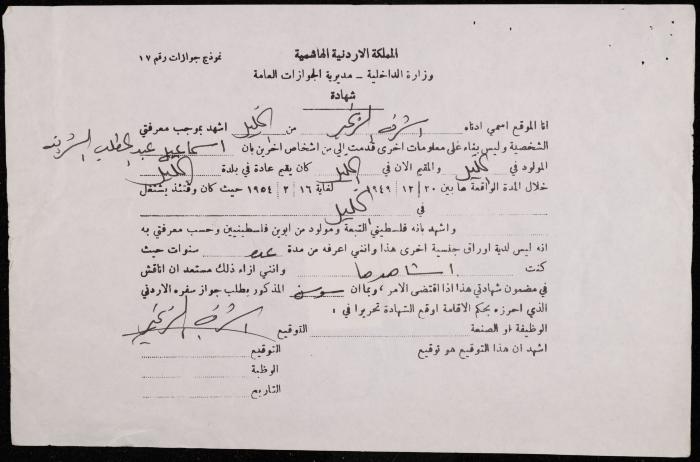 المملكة الاردنية الهاشمية
نموذج جوازات رقم ١٧
وزارة الداخلية - مديرية الجوازات العامة
شهادة
انا الموقع اسمي ادناه اشرف من الخليل اشهد بموجب معرفتي
الشخصية وليس بناء على معلومات اخرى قدمت الي من اشخاص اخرين بان اسماعيل عبد المطلب الشريف
المولود في الخليل والمقيم الان في الخليل كان يقيم عادة في بلدة الخليل
خلال المدة الواقعة ما بين ٢٠ / ١٢ / ١٩٤٩ لغاية ١٦ / ٢ / ١٩٥٤ حيث كان وقتئذ يشتغل
في الخليل
واشهد بانه فلسطيني التبعة ومولود من ابوين فلسطينيين وحسب معرفتي به
انه ليس لدية اوراق جنسية اخرى هذا وانني اعرفه من مدة عدة سنوات حيث
كنت اشاهدها وانني ازاء ذلك مستعد ان اناقش
في مضمون شهادتي هذا اذا اقتضى الامر، وبما ان المذكور يطلب جواز سفره الاردني
الذي احرزه بحكم الاقامة اوقع الشهادة تحريرا في :
الوظيفة او الصنعة التوقيع اشرف
اشهد ان هذا التوقيع هو توقيع التوقيع
الوظبة
التاريخ